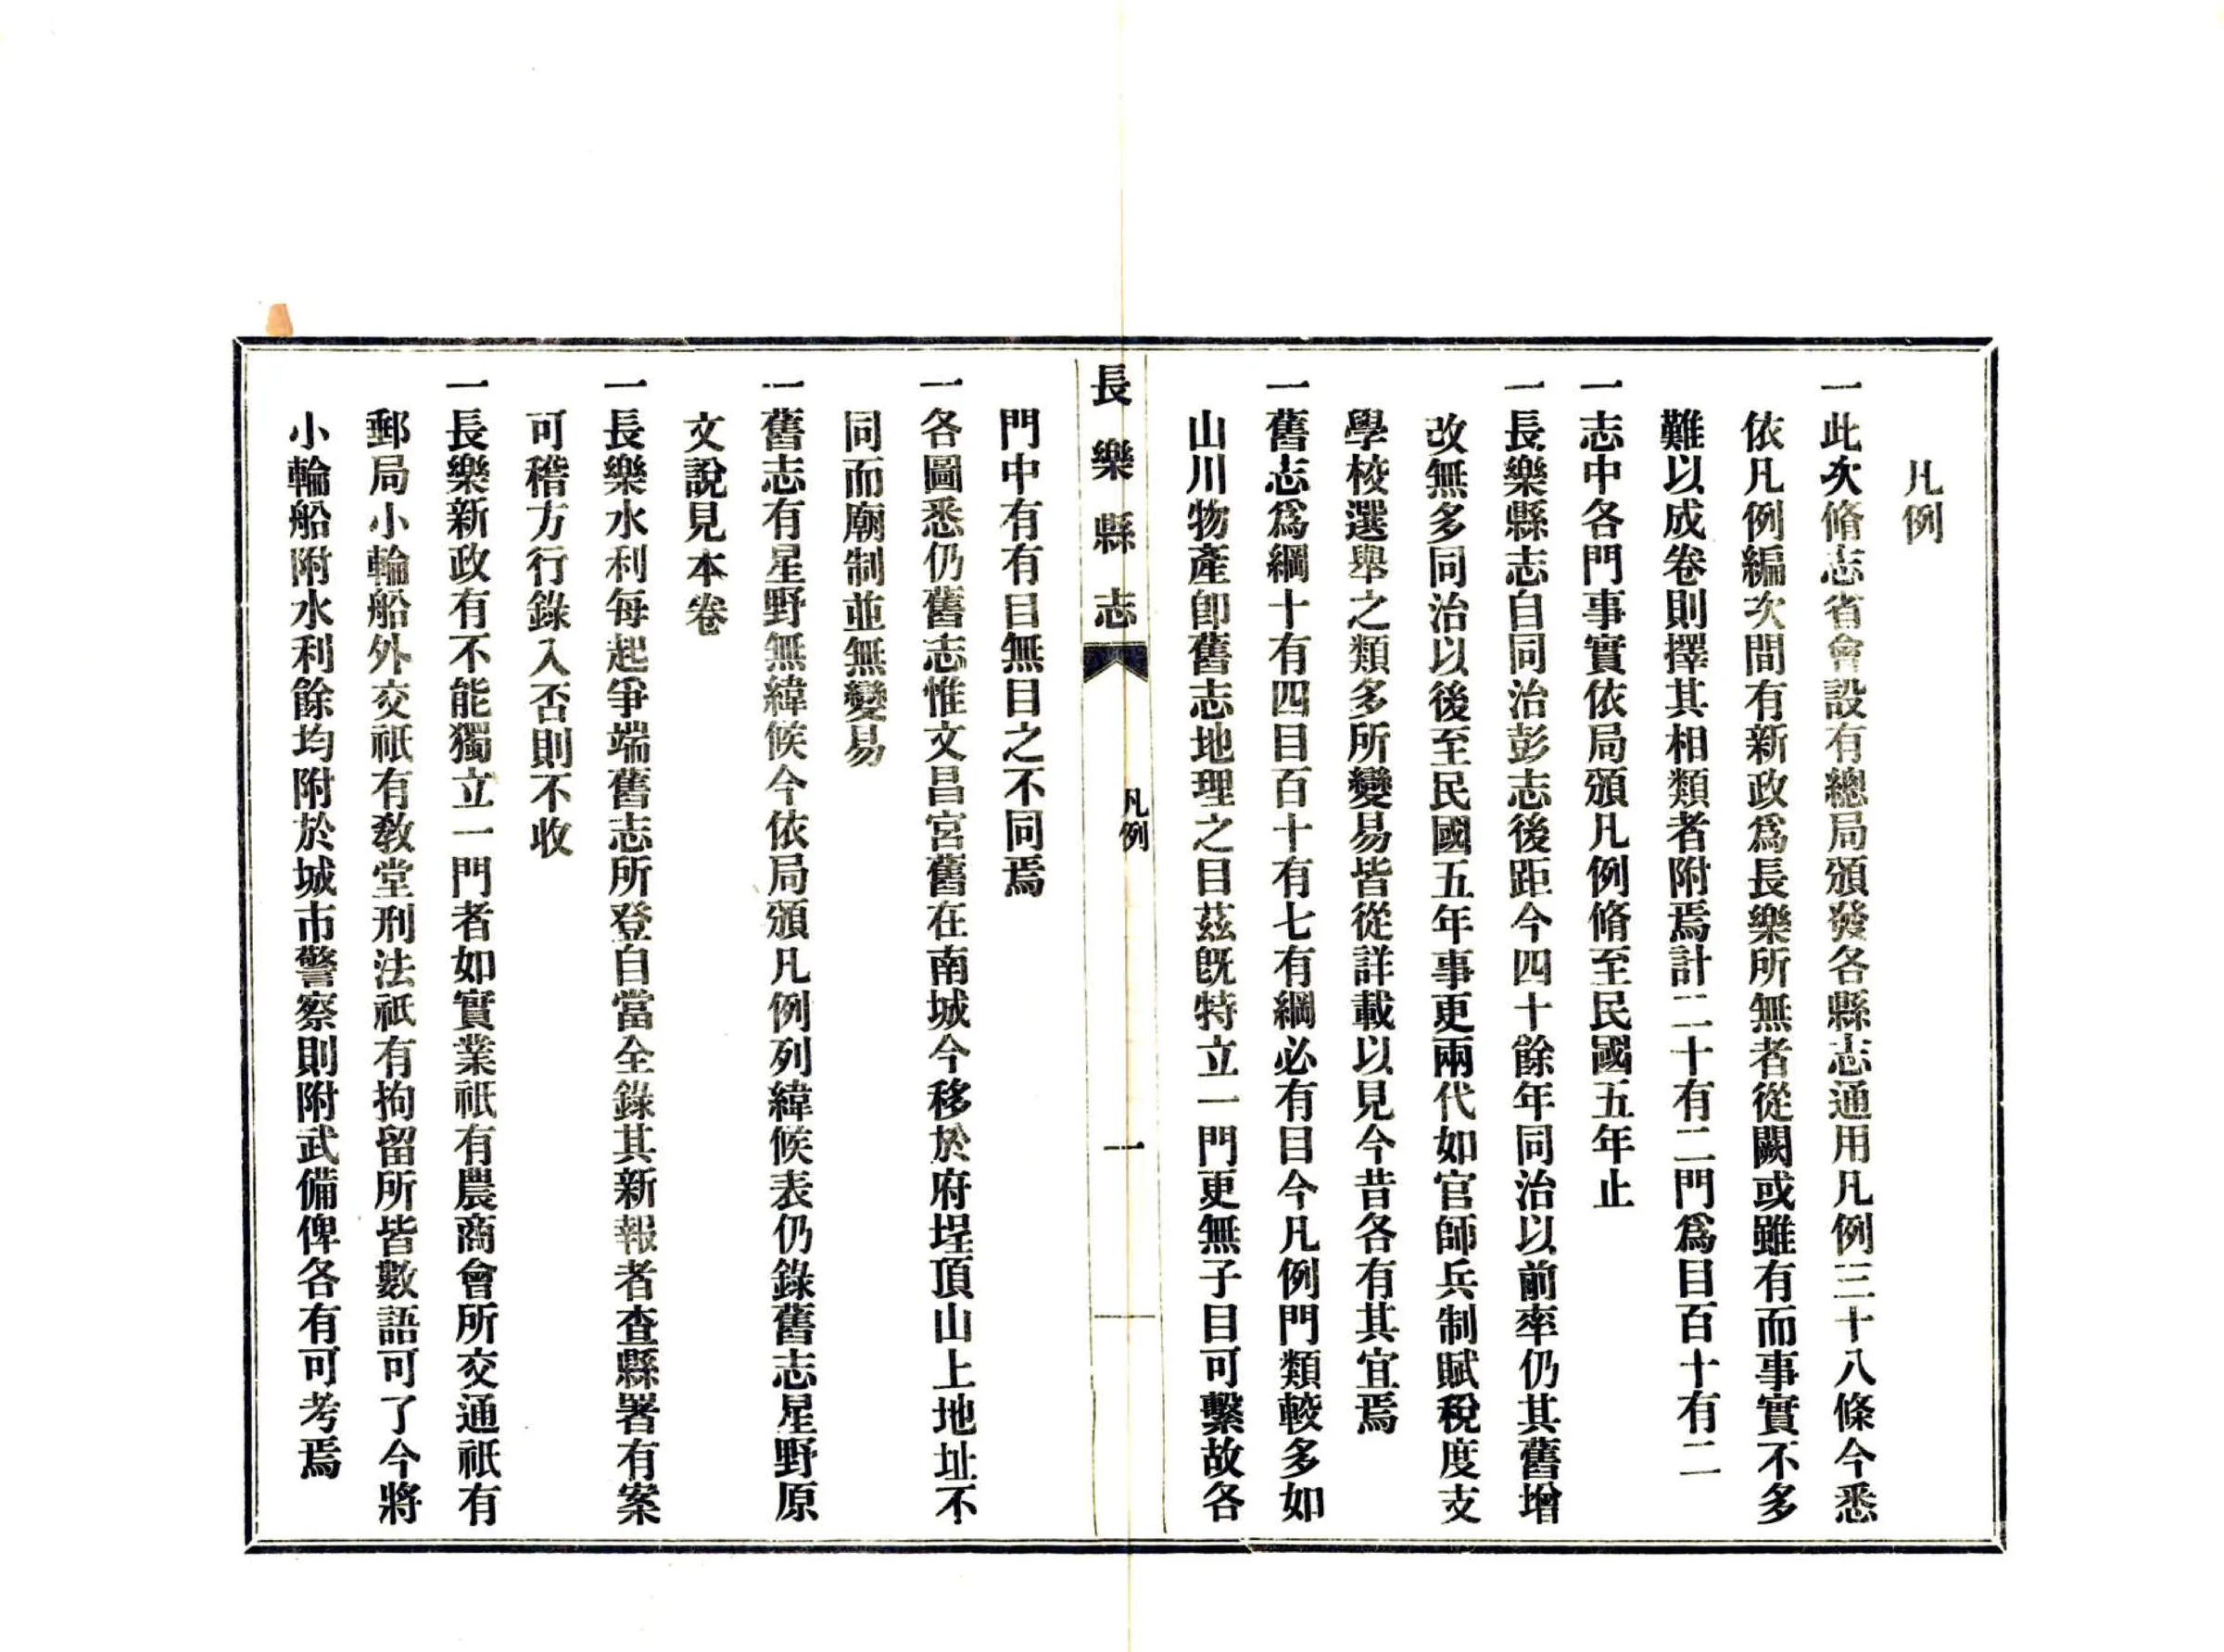 凡例
一此次脩志省會設有總局頒發各縣志通用凡例三十八條今悉
依凡例編次間有新政爲長樂所無者從闕或雖有而事實不多
難以成卷則擇其相類者附焉計二十有二門爲目百十有二
一志中各門事實依局頒凡例脩至民國五年止
一長樂縣志自同治彭志後距今四十餘年同治以前率仍其舊增
改無多同治以後至民國五年事更兩代如官師兵制賦稅度支
學校選舉之類多所變易皆從詳載以見今昔各有其宜焉
一舊志爲綱十有四目百十有七有綱必有目今凡例門類較多如
山川物產卽舊志地理之目茲旣特立一門更無子目可繫故各
長樂縣志
凡例
一
門中有有目無目之不同焉
一各圖悉仍舊志惟文昌宮舊在南城今移於府埕頂山上地址不
同而廟制並無變易
一舊志有星野無緯候今依局頒凡例列緯候表仍錄舊志星野原
文說見本卷
一長樂水利每起爭端舊志所登自當全錄其新報者查縣署有案
可稽方行錄入否則不收
一長樂新政有不能獨立一門者如實業祇有農商會所交通祇有
郵局小輪船外交祇有敎堂刑法祇有拘留所皆數語可了今將
小輪船附水利餘均附於城市警察則附武備俾各有可考焉